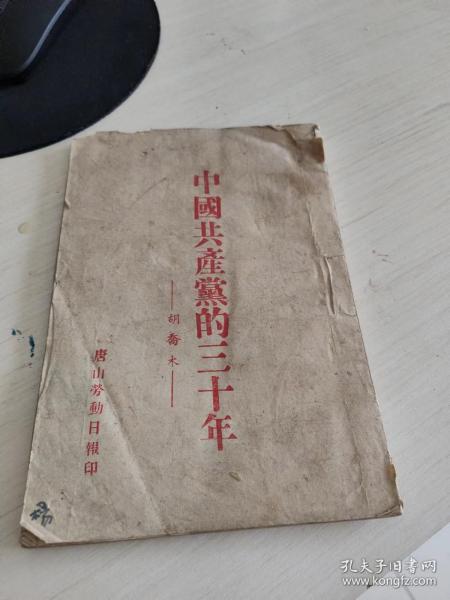 中國共產黨的三十年
——胡喬木——
唐山勞動日報印
孔夫子旧书网
www.kongfz.com